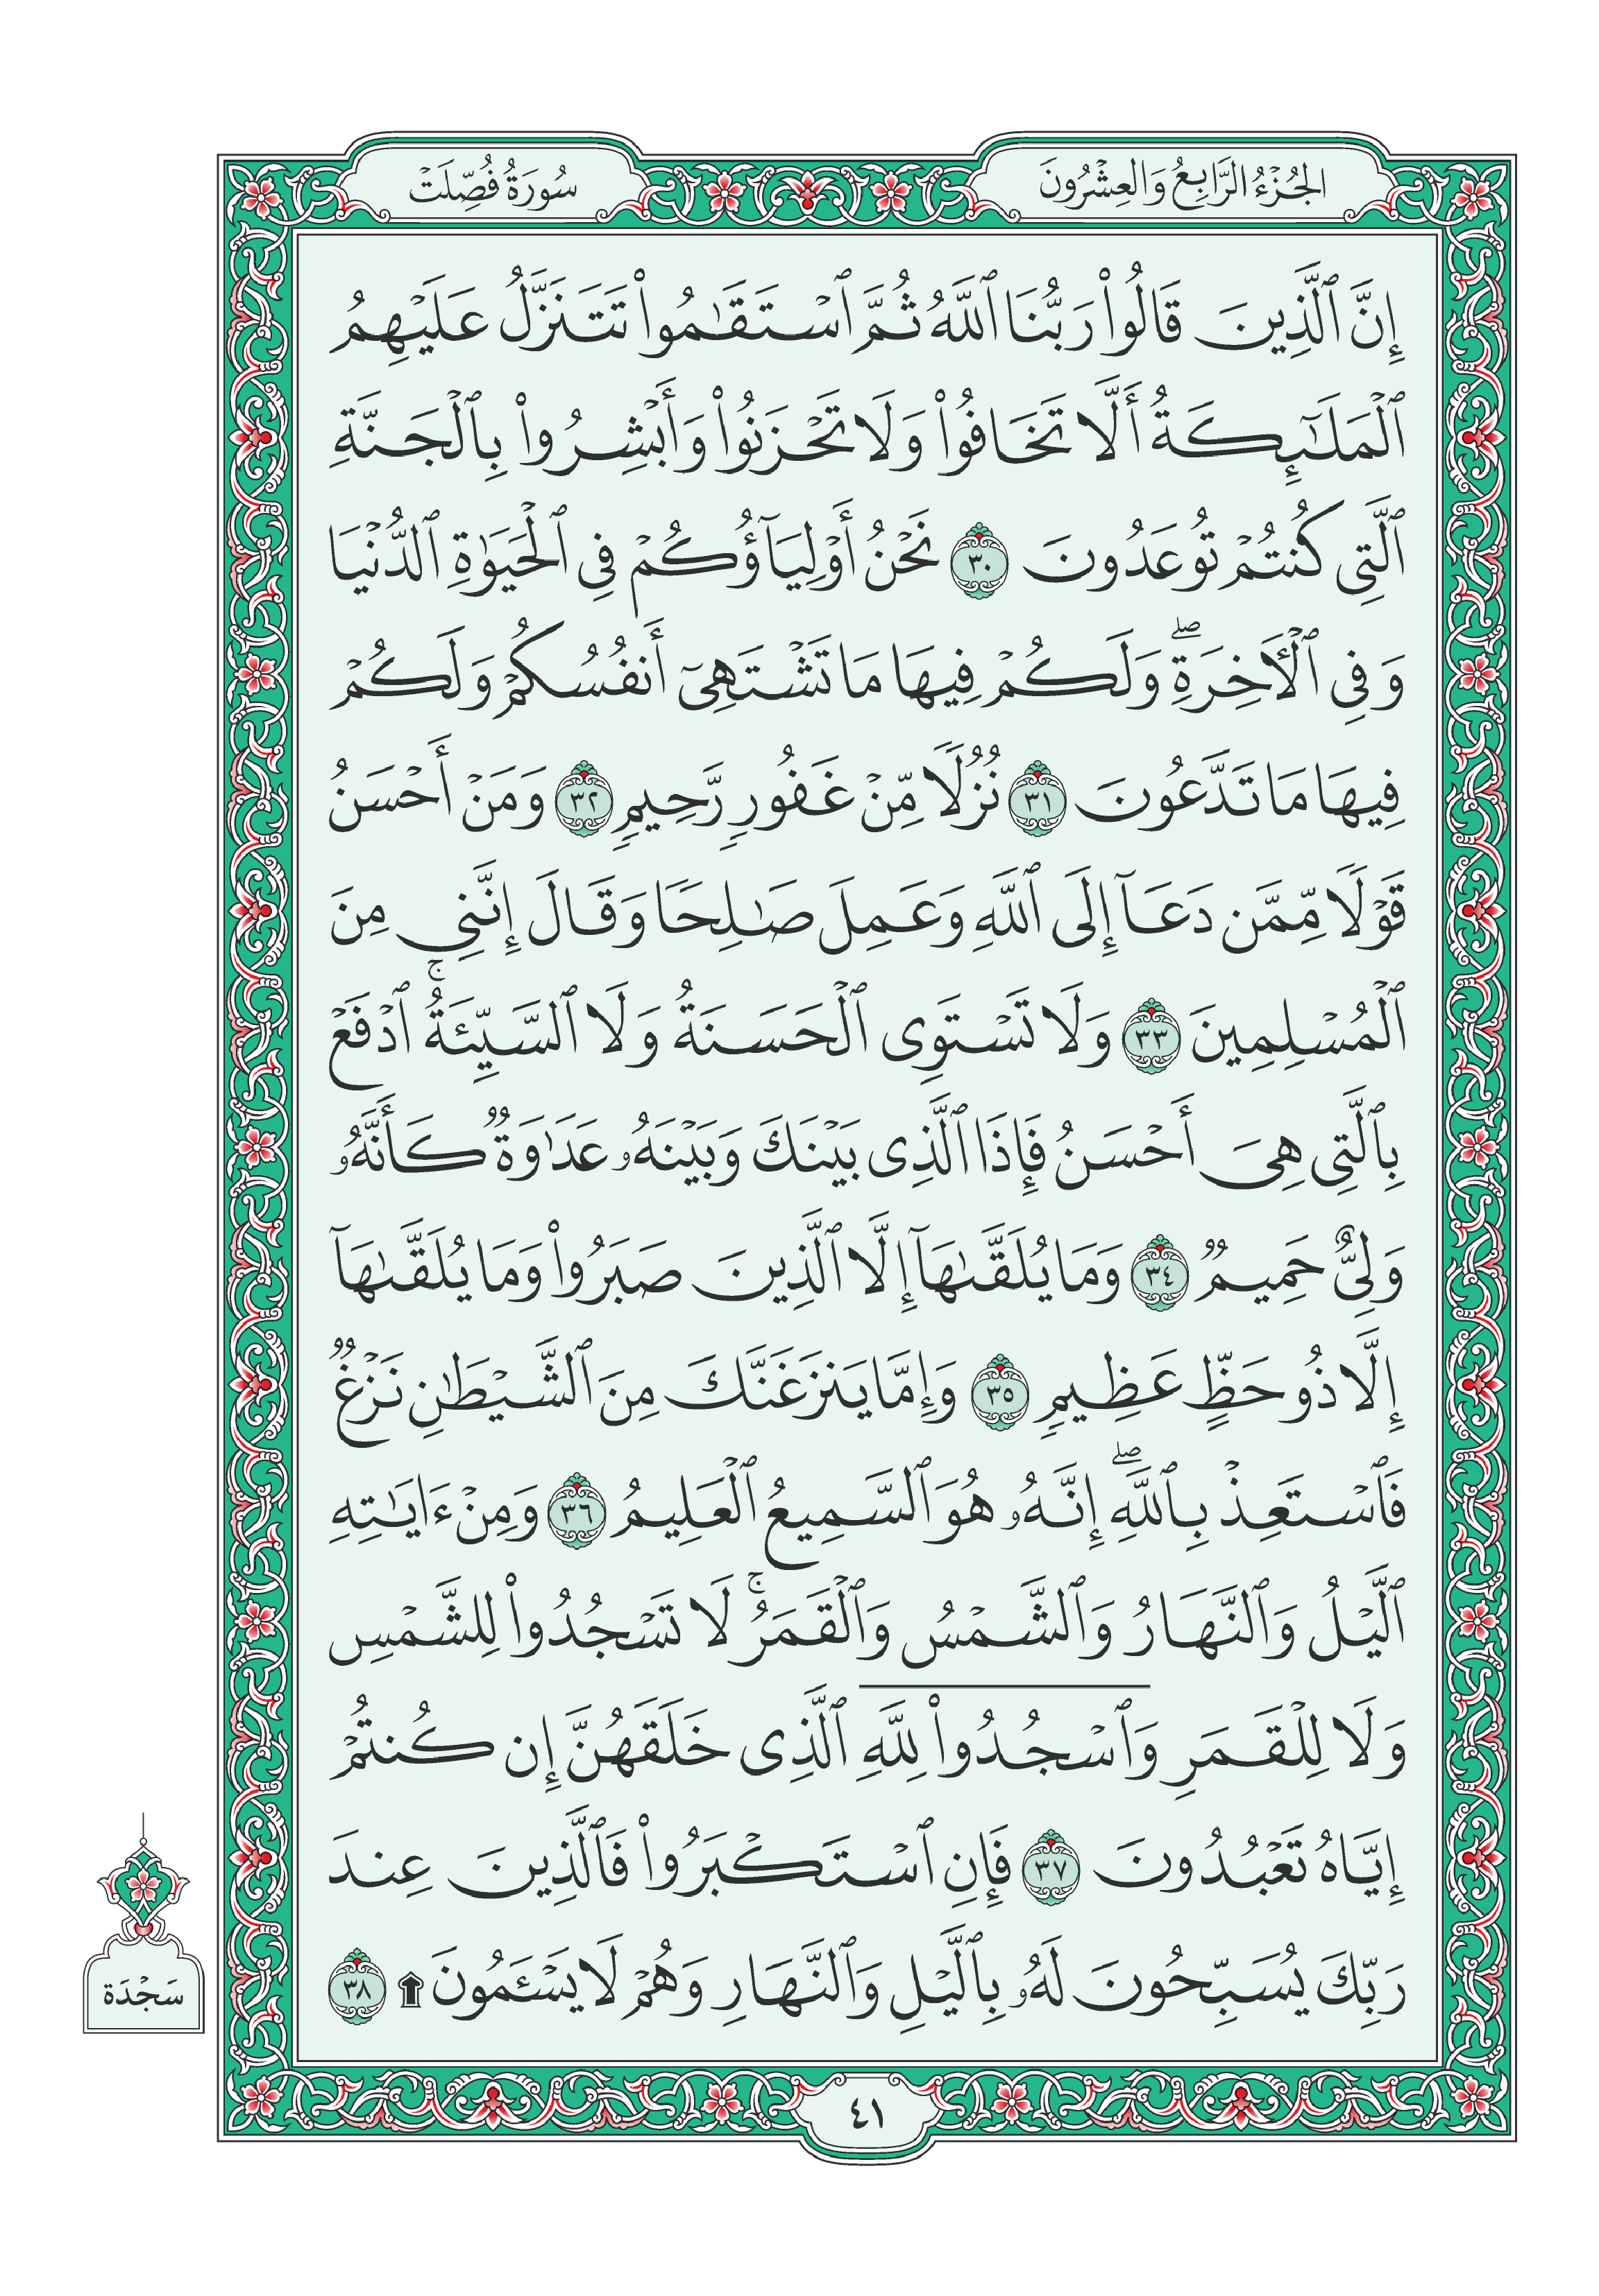 الجُزْءُ الرَّابِعُ وَالعِشْرُونَ
سُورَةُ فُصِّلَتْ
إِنَّ ٱلَّذِينَ قَالُوا۟ رَبُّنَا ٱللَّهُ ثُمَّ ٱسْتَقَـٰمُوا۟ تَتَنَزَّلُ عَلَيْهِمُ
ٱلْمَلَـٰٓئِكَةُ أَلَّا تَخَافُوا۟ وَلَا تَحْزَنُوا۟ وَأَبْشِرُوا۟ بِٱلْجَنَّةِ
ٱلَّتِى كُنتُمْ تُوعَدُونَ ٣٠ نَحْنُ أَوْلِيَآؤُكُمْ فِى ٱلْحَيَوٰةِ ٱلدُّنْيَا
وَفِى ٱلْـَٔاخِرَةِ ۖ وَلَكُمْ فِيهَا مَا تَشْتَهِىٓ أَنفُسُكُمْ وَلَكُمْ
فِيهَا مَا تَدَّعُونَ ٣١ نُزُلًا مِّنْ غَفُورٍ رَّحِيمٍ ٣٢ وَمَنْ أَحْسَنُ
قَوْلًا مِّمَّن دَعَآ إِلَى ٱللَّهِ وَعَمِلَ صَـٰلِحًا وَقَالَ إِنَّنِى مِنَ
ٱلْمُسْلِمِينَ ٣٣ وَلَا تَسْتَوِى ٱلْحَسَنَةُ وَلَا ٱلسَّيِّئَةُ ۚ ٱدْفَعْ
بِٱلَّتِى هِىَ أَحْسَنُ فَإِذَا ٱلَّذِى بَيْنَكَ وَبَيْنَهُۥ عَدَٰوَةٌ كَأَنَّهُۥ
وَلِىٌّ حَمِيمٌ ٣٤ وَمَا يُلَقَّىٰهَآ إِلَّا ٱلَّذِينَ صَبَرُوا۟ وَمَا يُلَقَّىٰهَآ
إِلَّا ذُو حَظٍّ عَظِيمٍ ٣٥ وَإِمَّا يَنزَغَنَّكَ مِنَ ٱلشَّيْطَـٰنِ نَزْغٌ
فَٱسْتَعِذْ بِٱللَّهِ ۖ إِنَّهُۥ هُوَ ٱلسَّمِيعُ ٱلْعَلِيمُ ٣٦ وَمِنْ ءَايَـٰتِهِ
ٱلَّيْلُ وَٱلنَّهَارُ وَٱلشَّمْسُ وَٱلْقَمَرُ ۚ لَا تَسْجُدُوا۟ لِلشَّمْسِ
وَلَا لِلْقَمَرِ وَٱسْجُدُوا۟ لِلَّهِ ٱلَّذِى خَلَقَهُنَّ إِن كُنتُمْ
إِيَّاهُ تَعْبُدُونَ ٣٧ فَإِنِ ٱسْتَكْبَرُوا۟ فَٱلَّذِينَ عِندَ
رَبِّكَ يُسَبِّحُونَ لَهُۥ بِٱلَّيْلِ وَٱلنَّهَارِ وَهُمْ لَا يَسْـَٔمُونَ ۩ ٣٨
سَجْدَة
٤١